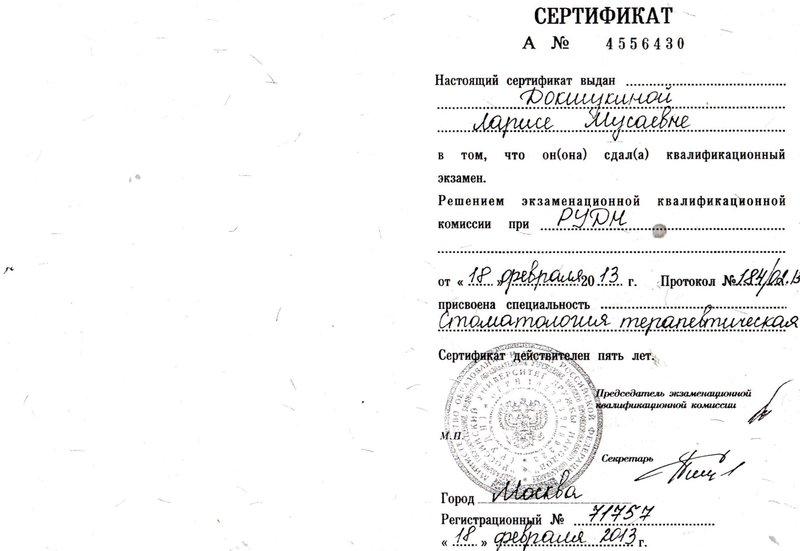 СЕРТИФИКАТ
А № 4556430
Настоящий сертификат выдан
Докшукиной
Ларисе Мусаевне
в том, что он(она) сдал(а) квалификационный
экзамен.
Решением экзаменационной квалификационной
комиссии при РУДН
от « 18 » февраля 2013 г. Протокол № 184/02.13
присвоена специальность
Стоматология терапевтическая
Сертификат действителен пять лет.
Председатель экзаменационной
квалификационной комиссии
М.П.
Секретарь
Город Москва
Регистрационный № 71757
« 18 » февраля 2013 г.